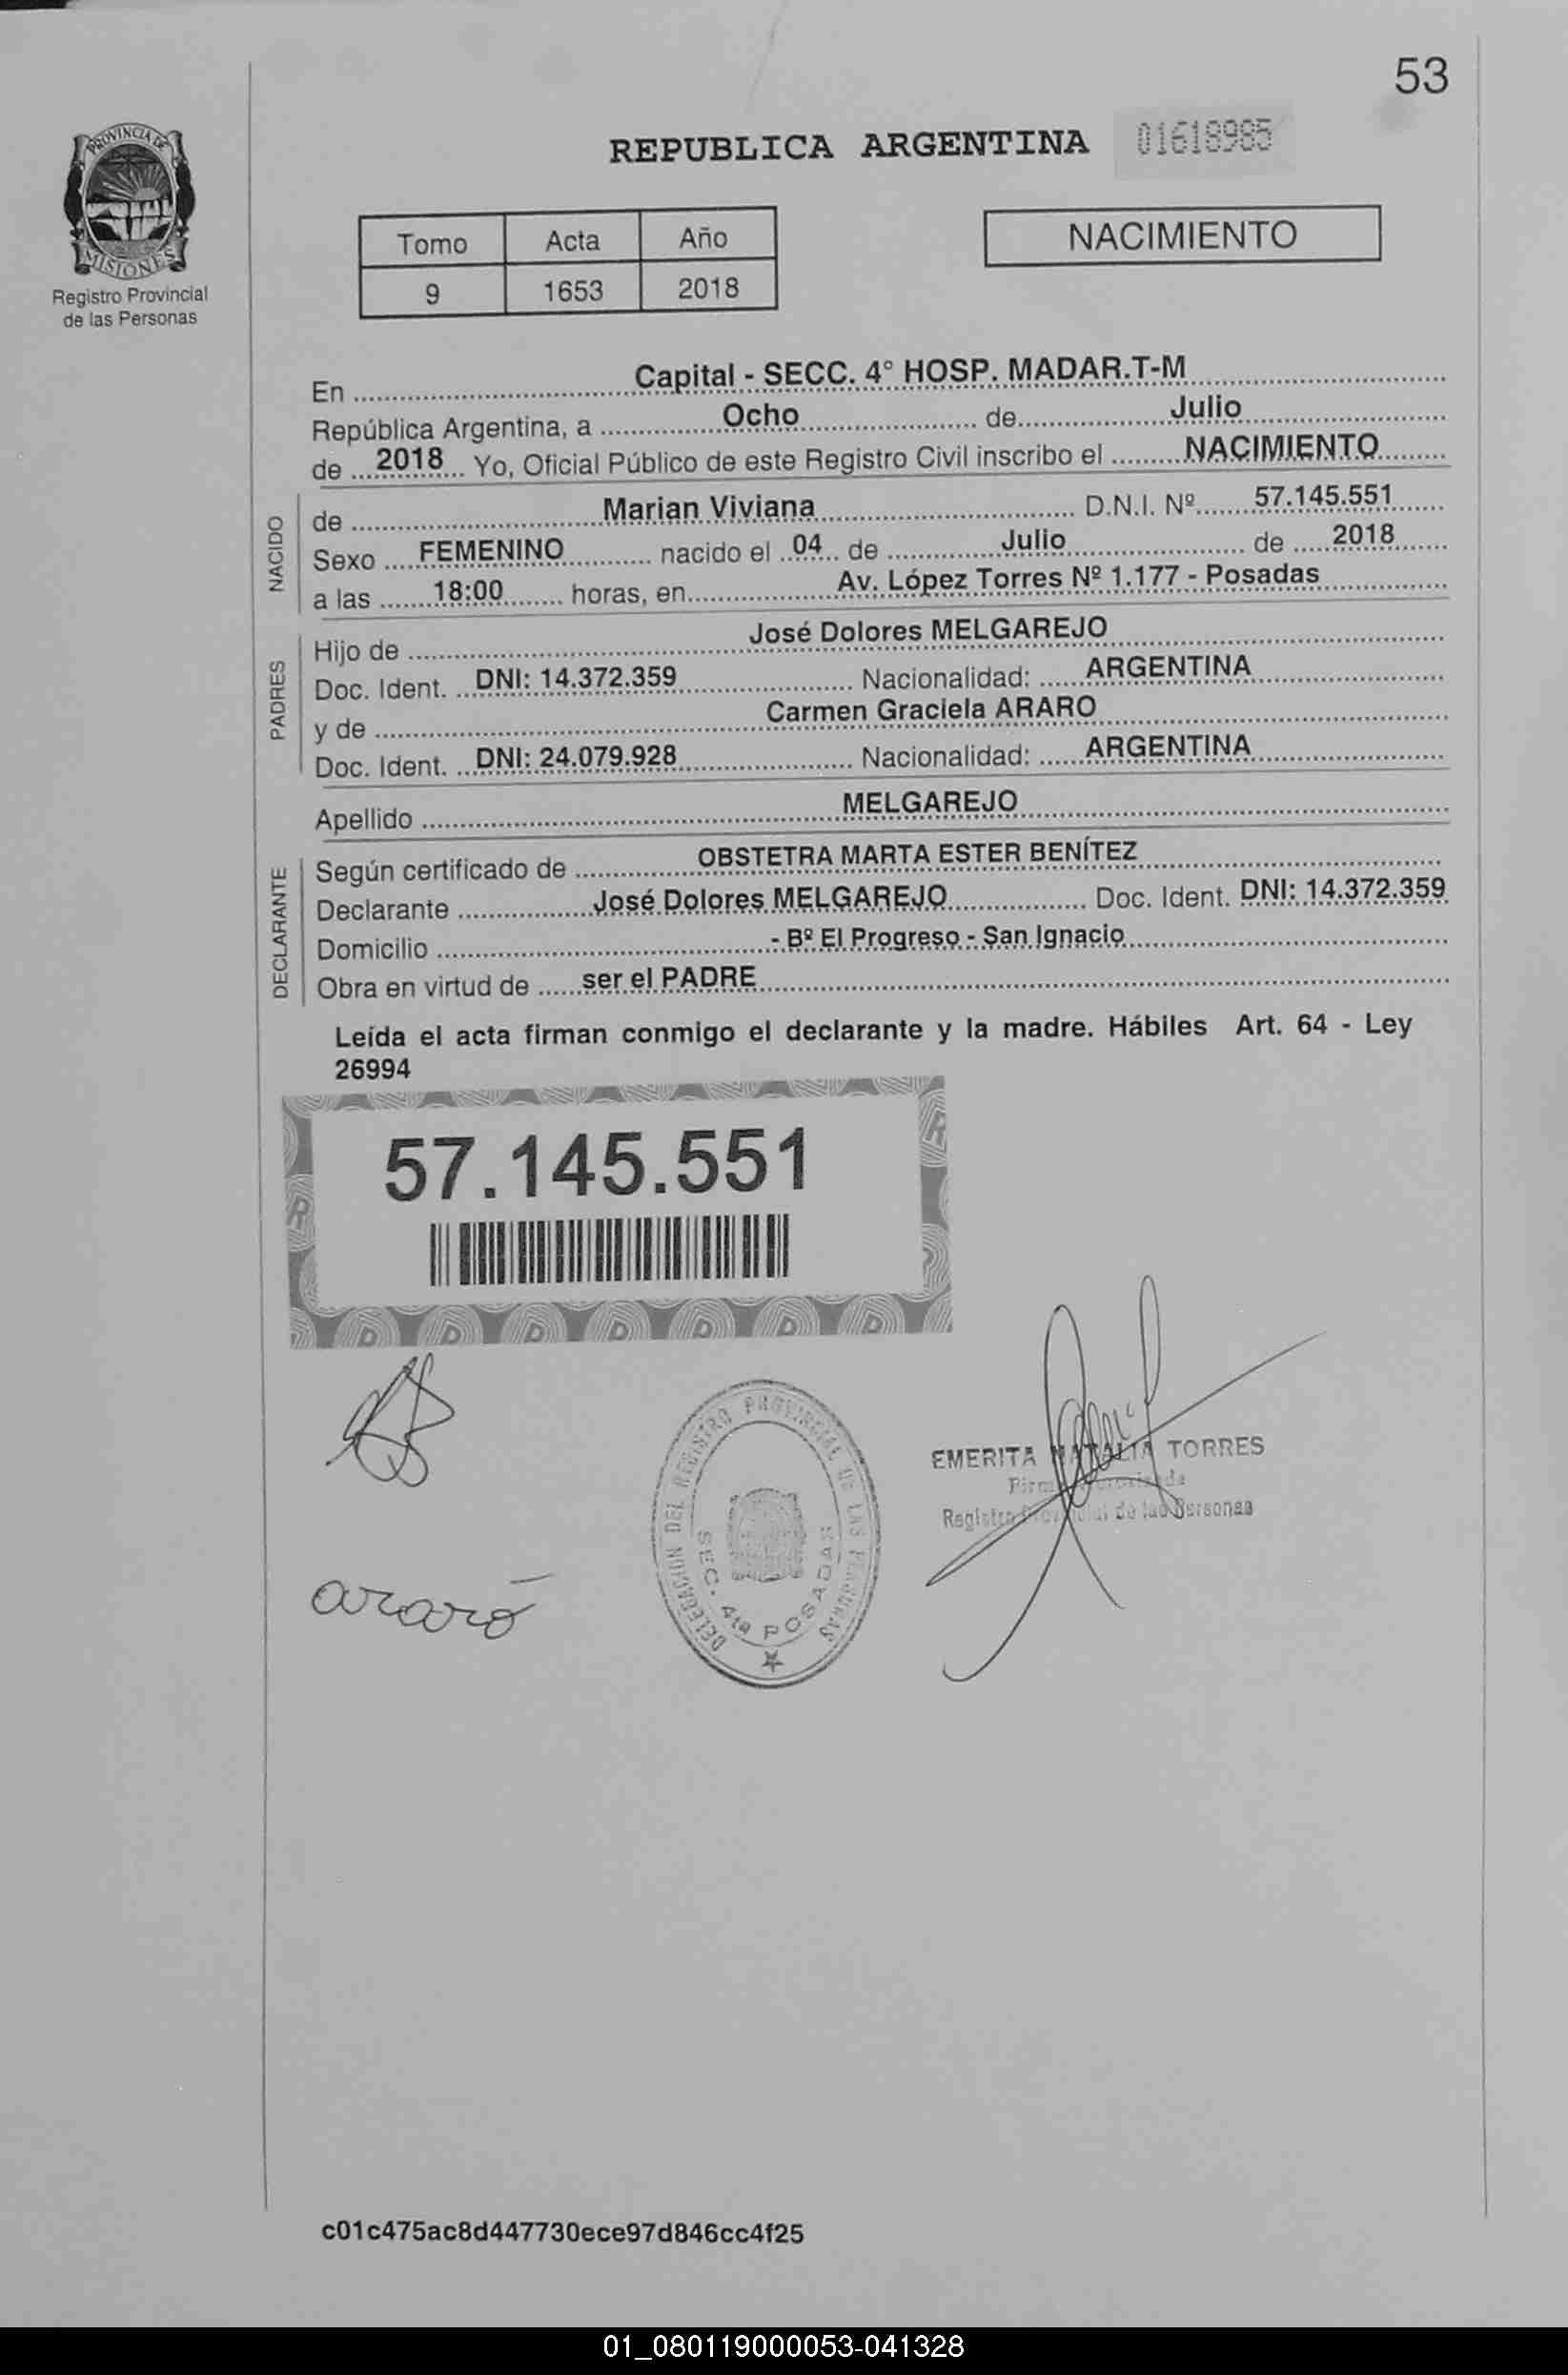 53
PROVINCIA DE
MISIONES
Registro Provincial
de las Personas
REPUBLICA ARGENTINA 01618985
Tomo Acta Año
9 1653 2018
NACIMIENTO
En Capital - SECC. 4° HOSP. MADAR.T-M
República Argentina, a Ocho de Julio
de 2018 Yo, Oficial Público de este Registro Civil inscribo el NACIMIENTO
NACIDO
de Marian Viviana D.N.I. Nº 57.145.551
Sexo FEMENINO nacido el 04 de Julio de 2018
a las 18:00 horas, en Av. López Torres Nº 1.177 - Posadas
PADRES
Hijo de José Dolores MELGAREJO
Doc. Ident. DNI: 14.372.359 Nacionalidad: ARGENTINA
y de Carmen Graciela ARARO
Doc. Ident. DNI: 24.079.928 Nacionalidad: ARGENTINA
Apellido MELGAREJO
DECLARANTE
Según certificado de OBSTETRA MARTA ESTER BENÍTEZ
Declarante José Dolores MELGAREJO Doc. Ident. DNI: 14.372.359
Domicilio - Bº El Progreso - San Ignacio
Obra en virtud de ser el PADRE
Leída el acta firman conmigo el declarante y la madre. Hábiles Art. 64 - Ley
26994
57.145.551
araró
DELEGACION DEL REGISTRO PROVINCIAL DE LAS PERSONAS
SEC. 4ta POSADAS
EMERITA NATALIA TORRES
Registro Provincial de las Personas
c01c475ac8d447730ece97d846cc4f25
01_080119000053-041328